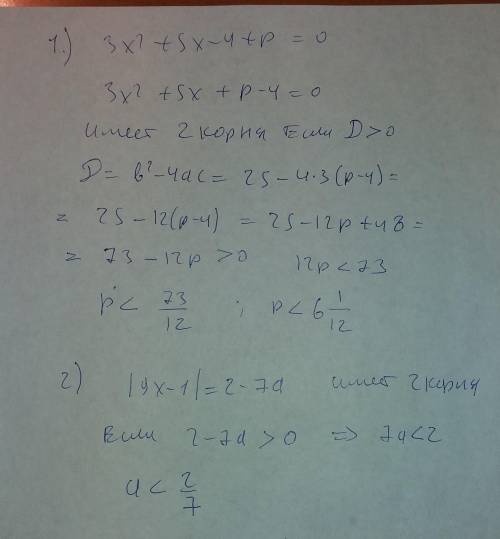 1.) 3x² + 5x - 4 + p = 0
3x² + 5x + p - 4 = 0
имеет 2 корня Если D > 0
D = b² - 4ac = 25 - 4·3(p-4) =
= 25 - 12(p-4) = 25 - 12p + 48 =
= 73 - 12p > 0 12p < 73
p < 73/12 ; p < 6 1/12
2) |9x-1| = 2 - 7a имеет 2 корня
Если 2 - 7a > 0 => 7a < 2
a < 2/7